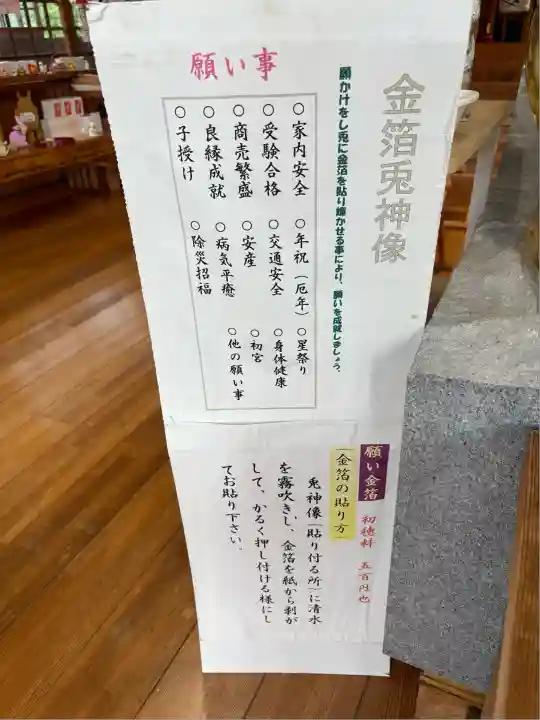 金箔兎神像
願かけをし兎に金箔を貼り輝かせる事により、願いを成就しましょう。
願い事
○家内安全 ○年祝(厄年) ○星祭り
○受験合格 ○交通安全 ○身体健康
○商売繁盛 ○安産 ○初宮
○良縁成就 ○病気平癒 ○他の願い事
○子授け ○除災招福
願い金箔 初穂料 五百円也
金箔の貼り方
兎神像(貼り付る所)に清水
を霧吹きし、金箔を紙から剥が
して、かるく押し付ける様にし
てお貼り下さい。